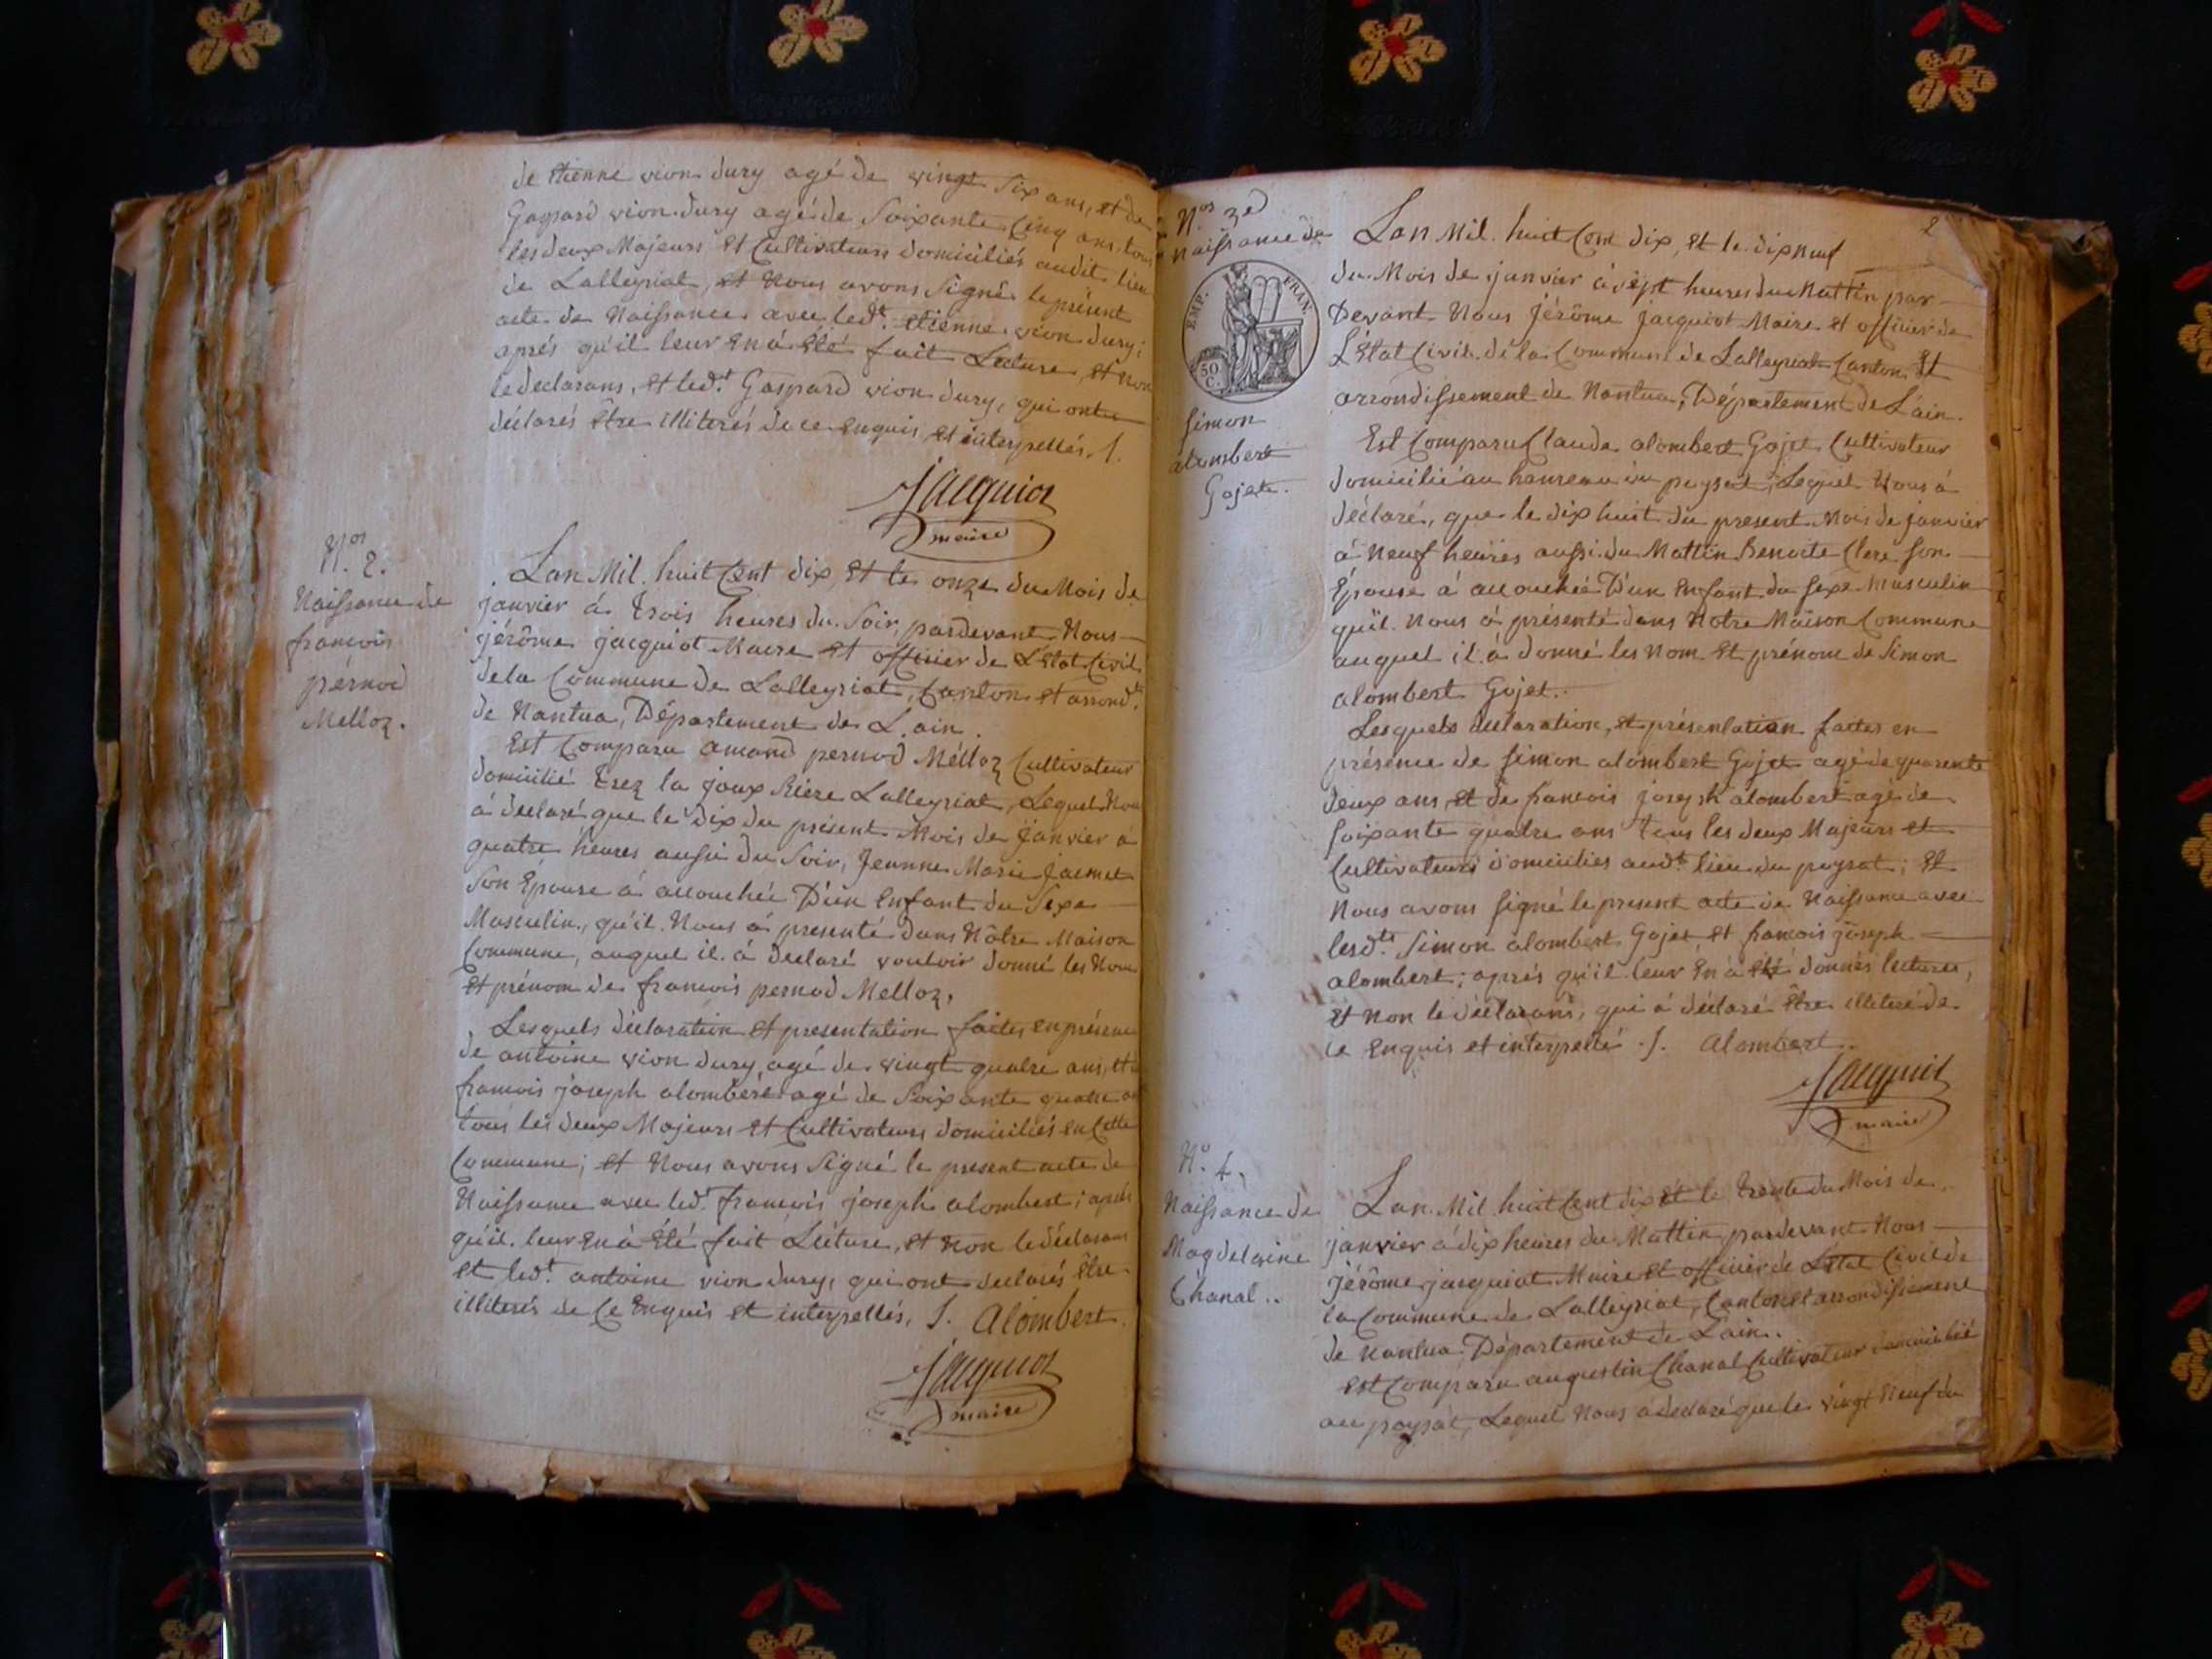 de Etienne vion dury agé de vingt Six ans, et de
Gaspard vion dury agé de Soixante Cinq ans, tous
les deux Majeurs et Cultivateurs domiciliés audit lieu
de Lalleyriat, et Nous avons Signé le présent
acte de Naissance avec led.t Etienne vion dury;
aprés qu'il leur en à Eté fait Lecture, et non
le declarans, et led.t Gaspard vion dury, qui ont
déclarés être illiterés de ce enquis et interpellés. /.
Jacquiot
maire
N.os 2.
Naissance de
francois
pernod
Melloz.
Lan Mil huit Cent dix, et le onze du Mois de
janvier à trois heures du Soir, pardevant Nous
jérôme jacquiot Maire et officier de L'Etat Civil
de la Commune de Lalleyriat, Canton et arrond.t
de Nantua, Département de L'ain.
Est Comparu amand pernod Mélloz Cultivateur
domicilié trez la joux Riere Lalleyriat, Lequel Nous
à declaré que le dix du présent Mois de Janvier à
quatre heures aussi du Soir, Jeanne Marie Jacmet
Son Epouse à accouchée D'un Enfant du Sexe
Masculin, qu'il Nous à presenté dans Nôtre Maison
Commune, auquel il à declaré vouloir donné les Nom
et prénom de francois pernod Melloz,
Lesquels déclaration et presentation faites en présence
de antoine vion dury agé de vingt quatre ans, et
francois joseph alombert agé de Soixante quatre ans
tous les deux Majeurs et Cultivateurs domiciliés en Cette
Commune; et Nous avons Signé le present acte de
Naissance avec led.t francois joseph alombert; aprés
qu'il leur en à Eté fait Lecture, et non le déclarans
et led.t antoine vion dury, qui ont declarés être
illiterés de Ce Enquis et interpellés, /. Alombert
Jacquiot
maire
2
N.os 3e
Naissance de
EMP. FRAN.
50 C.
Simon
alombert
Gojet.
Lan Mil huit Cent dix, et le dix neuf
du Mois de janvier à sept heures du Mattin par
Devant Nous Jérôme Jacquiot Maire et officier de
L'Etat Civil de la Commune de Lalleyriat Canton Et
arrondissement de Nantua, Département de L'ain.
Est Comparu Claude alombert Gojet Cultivateur
domicilié au hameau du poysat, Lequel Nous à
déclaré, que le dix huit du present Mois de janvier
à Neuf heures aussi du Mattin Benoite Clerc Son
Epouse à accouchée D'un Enfant du sexe Masculin
qu'il Nous à présenté dans Notre Maison Commune
auquel il à donné les Nom et prénom de Simon
alombert Gojet.
Lesquels declaration, et présentation faites en
présence de Simon alombert Gojet agé de quarente
deux ans, et de francois joseph alombert agé de
soixante quatre ans tous les deux Majeurs et
Cultivateurs domiciliés aud.t lieu du poysat; Et
Nous avons signé le present acte de Naissance avec
lesd.ts Simon alombert Gojet et francois joseph
alombert; aprés qu'il leur en à Eté donnés lectures,
et non le déclarans, qui à déclaré être illiteré de
ce Enquis et interpellé ./. Alombert
Jacquiot
maire
N.o 4.
Naissance de
Magdelaine
Chanal..
Lan Mil huit Cent dix Et le trente du Mois de
janvier à dix heures du Mattin pardevant Nous
jérôme jacquiot Maire et officier de Létat Civil de
la Commune de Lalleyriat, Canton et arrondissement
de Nantua, Département de Lain.
Est Comparu augustin Chanal Cultivateur domicilié
au poysat, Lequel Nous à declaré que le vingt Neuf du